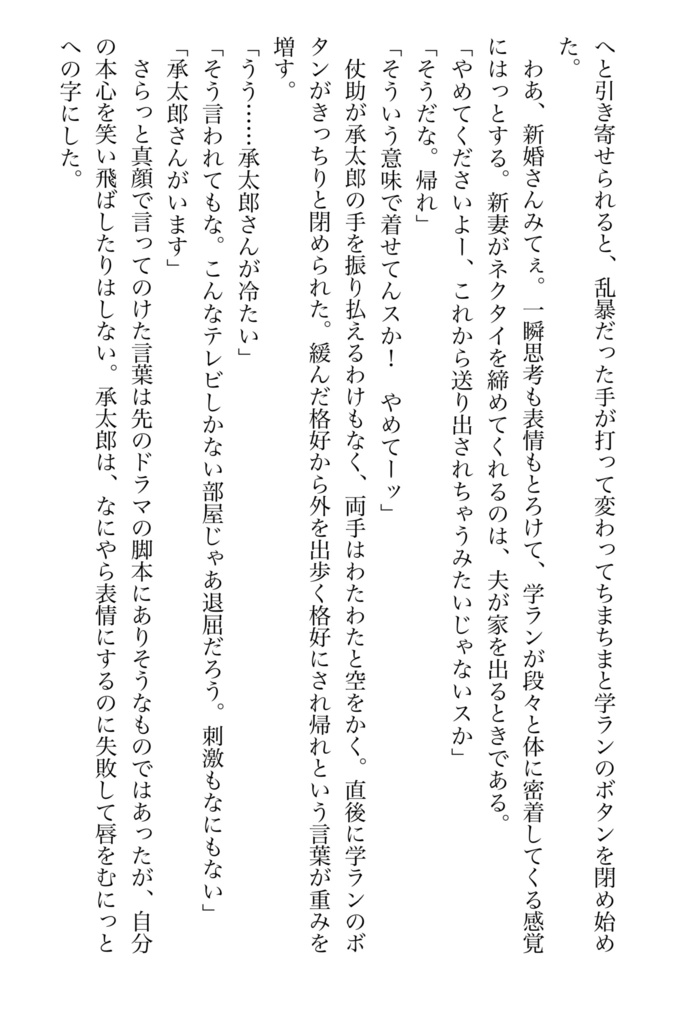 へと引き寄せられると、乱暴だった手が打って変わってちまちまと学ランのボタンを閉め始め
た。
　わあ、新婚さんみてぇ。一瞬思考も表情もとろけて、学ランが段々と体に密着してくる感覚
にはっとする。新妻がネクタイを締めてくれるのは、夫が家を出るときである。
「やめてくださいよー、これから送り出されちゃうみたいじゃないスか」
「そうだな。帰れ」
「そういう意味で着せてんスか！　やめてーッ」
　仗助が承太郎の手を振り払えるわけもなく、両手はわたわたと空をかく。直後に学ランのボ
タンがきっちりと閉められた。緩んだ格好から外を出歩く格好にされ帰れという言葉が重みを
増す。
「うう……承太郎さんが冷たい」
「そう言われてもな。こんなテレビしかない部屋じゃあ退屈だろう。刺激もなにもない」
「承太郎さんがいます」
　さらっと真顔で言ってのけた言葉は先のドラマの脚本にありそうなものではあったが、自分
の本心を笑い飛ばしたりはしない。承太郎は、なにやら表情にするのに失敗して唇をむにっと
への字にした。